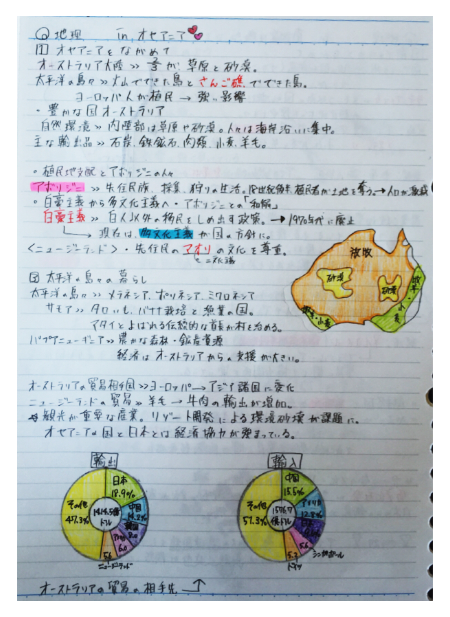 地理 in オセアニア
1 オセアニアをながめて
オーストラリア大陸 >> 草原と砂漠。
太平洋の島々 >> 火山でできた島とさんご礁でできた島。
ヨーロッパ人が植民 → 強い影響
・豊かな国オーストラリア
自然環境 >> 内陸部は草原や砂漠。人々は海岸沿いに集中。
主な輸出品 >> 石炭、鉄鉱石、肉類、小麦、羊毛。
・植民地支配とアボリジニの人々
アボリジニー >> 先住民族、採集、狩りの生活。植民者が土地を奪う → 人口が激減
・白豪主義から多文化主義へ・アボリジニとの「和解」
白豪主義 >> 白人以外の移民をしめ出す政策。→ 1970年代に廃止
→ 現在は、多文化主義が国の方針に。
<ニュージーランド>・先住民のマオリの文化を尊重。
放牧
砂漠
砂漠
牧羊・小麦
牧羊・小麦
2 太平洋の島々の暮らし
太平洋の島々 >> メラネシア、ポリネシア、ミクロネシア
サモア >> タロいも、バナナ栽培と漁業の国。
マタイとよばれる伝統的な首長が村を治める。
パプアニューギニア >> 豊かな森林・鉱産資源
経済はオーストラリアからの支援が大きい。
オーストラリアの貿易相手国 >> ヨーロッパ → アジア諸国に変化
ニュージーランドの貿易 >> 羊毛 → 牛肉の輸出が増加。
観光が重要な産業。リゾート開発による環境破壊が課題に。
オセアニアの国と日本とは経済協力が強まっている。
輸出
日本
18.9%
中国
韓国
その他
47.3%
ニュージーランド
輸入
中国
15.5%
アメリカ
その他
57.3%
シンガポール
ドイツ
オーストラリアの貿易の相手先